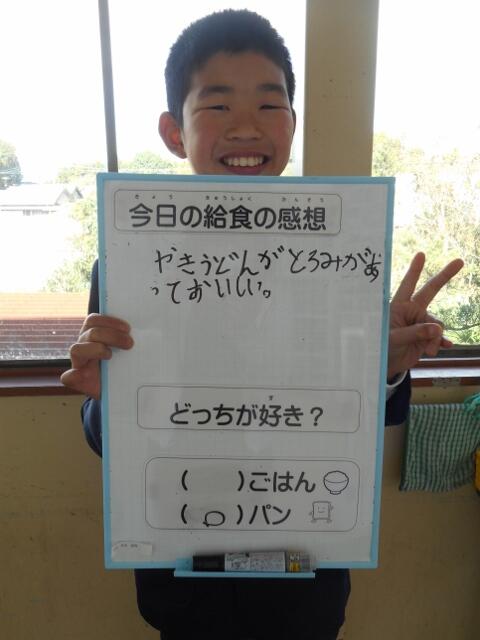 きょう きゅうしょく かんそう
今日の給食の感想
やきうどんがとろみがあ
っておいしい。
す
どっちが好き？
(　　)ごはん
(○)パン